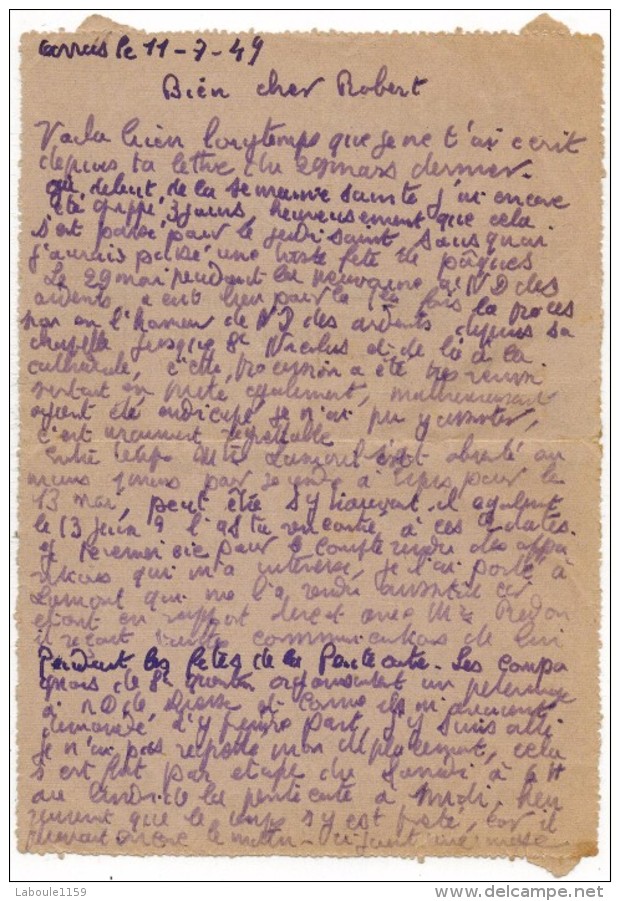 Arras le 11-7-49
Bien cher Robert
Voila bien longtemps que je ne t'ai ecrit
depuis ta lettre du 29 mars dernier.
au debut de la semaine sainte j'ai encore
été grippé 3 jours, heureusement que cela
s'est passé pour le jeudi saint sans quoi
j'aurais passé une triste fête de pâques
Le 29 mai pendant la neuvaine à ND des
ardents, a eu lieu pour la 1ère fois la proces
sion en l'honneur de ND des ardents depuis sa
chapelle jusqu'à St Nicolas et de là à la
cathédrale, cette procession a été très réussi
surtout en piété également, malheureusement
ayant été indiqué je n'ai pu y assister,
c'est vraiment regrettable
Entre temps Mr Lamont s'est absenté au
moins jours pour se rendre à pour le
13 mai, peut être s'y trouvant il également
le 13 juin ? l'as tu rencontré à ces 2 dates.
et remercie pour le compte rendu des appa
ritions qui m'a intéressé, je l'ai porté à
Lamont qui me l'a rendu aussitôt car
étant en rapport direct avec Mr
il reçoit toutes communications de lui
Pendant les fetes de la Pentecote. Les compa
gnons de St Quentin organisaient un pelerinage
à ND de Liesse et comme ils m'avaient
demandé d'y prendre part, j'y suis allé
je n'ai pas regretté mon déplacement, cela
s'est fait par étape du Samedi à 6H
au Lundi de la pentecôte à Midi, heu
reusement que le temps s'y est prêté, car il
pleuvait encore le matin
Laboule1159
www.delcampe.net